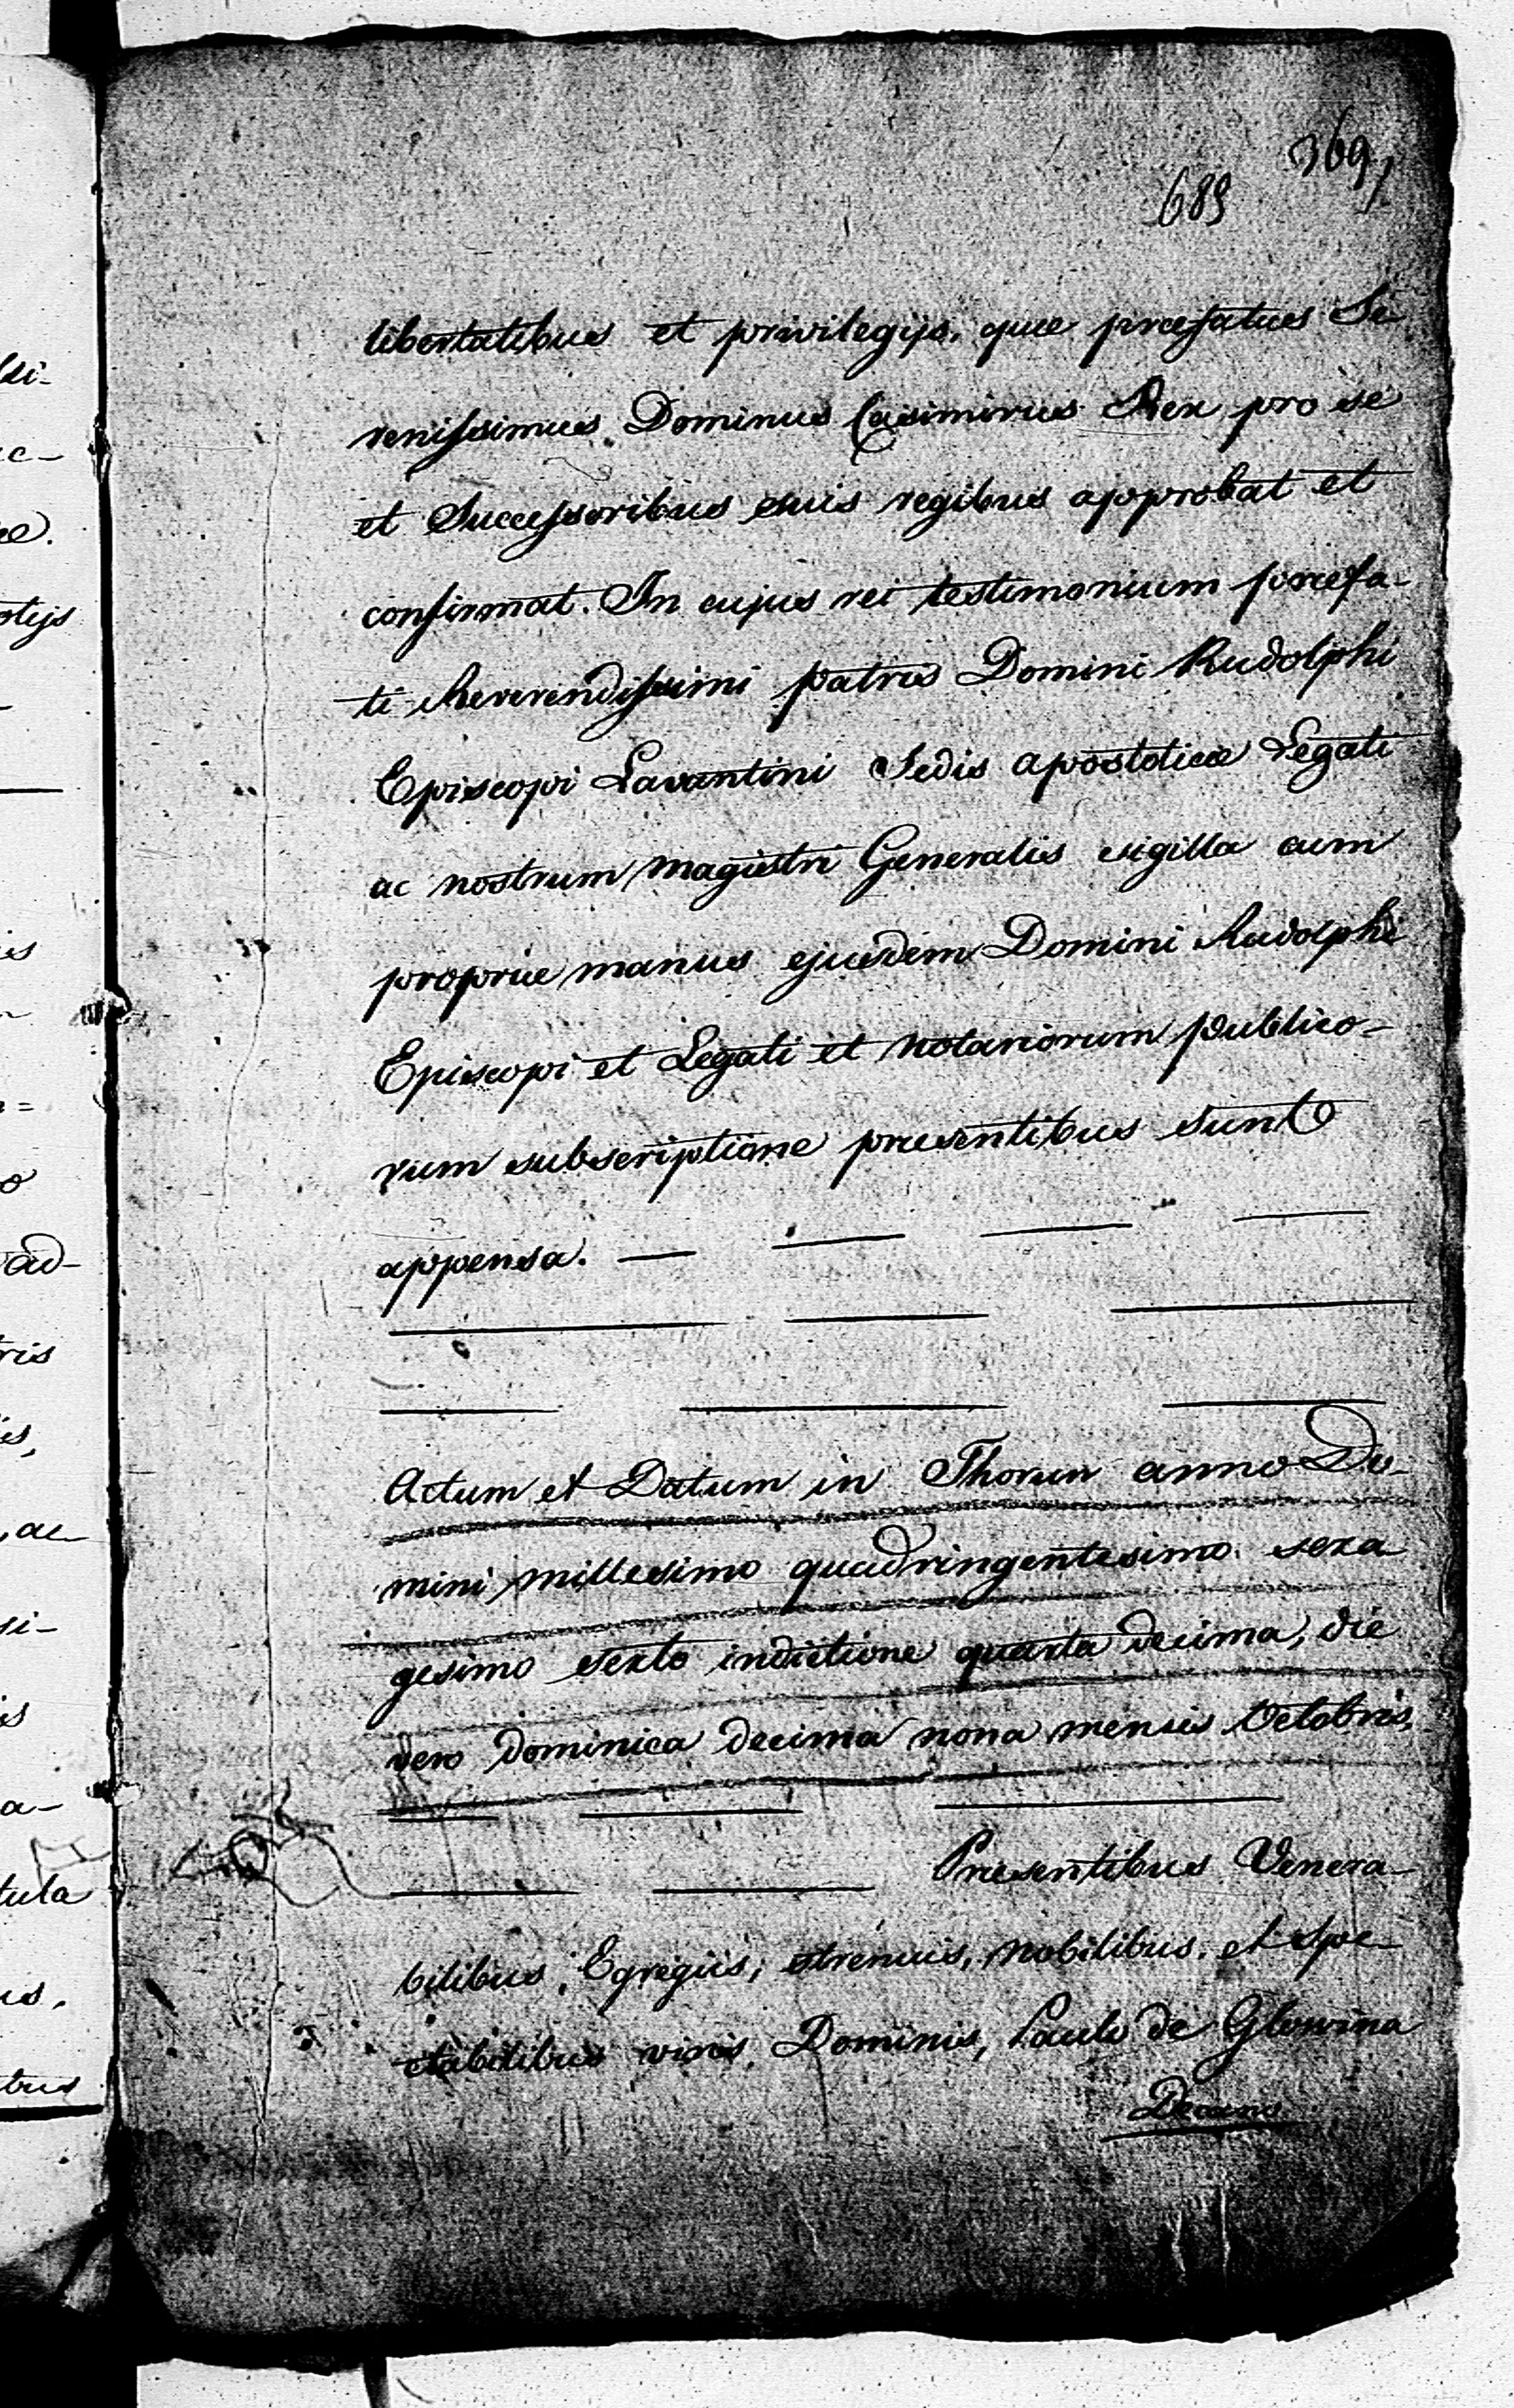 369,
689
libertatibus et privilegijs, quae praefatus Se-
renissimus Dominus Casimirus Rex pro se
et Successoribus suis regibus approbat et
confirmat. In cujus rei testimonium praefa-
ti Reverendissimi patris Domini Rudolphi
Episcopi Lavantini Sedis apostolicae Legati
ac nostrum magistri Generalis sigilla cum
propriae manus ejusdem Domini Rudolphi
Episcopi et Legati et notariorum publico-
rum subscriptione praesentibus sunt
appensa.
Actum et Datum in Thorun anno Do-
mini millesimo quadringentesimo sexa
gesimo sexto indictione quarta decima, die
vero dominica decima nona mensis Octobris,
Praesentibus Venera-
bilibus, Egregiis, strenuis, nobilibus, et spe-
ctabilibus viris, Dominis, Paulo de Glowina
Decano